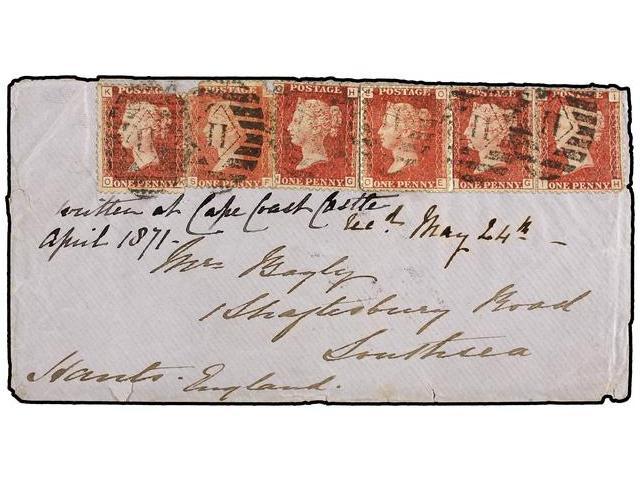 POSTAGE POSTAGE POSTAGE POSTAGE POSTAGE POSTAGE
ONE PENNY ONE PENNY ONE PENNY ONE PENNY ONE PENNY ONE PENNY
written at Cape Coast Castle
April 1871. Rec.d May 24th
Mrs Bagly
1 Shaftesbury Road
Southsea
Hants. England.